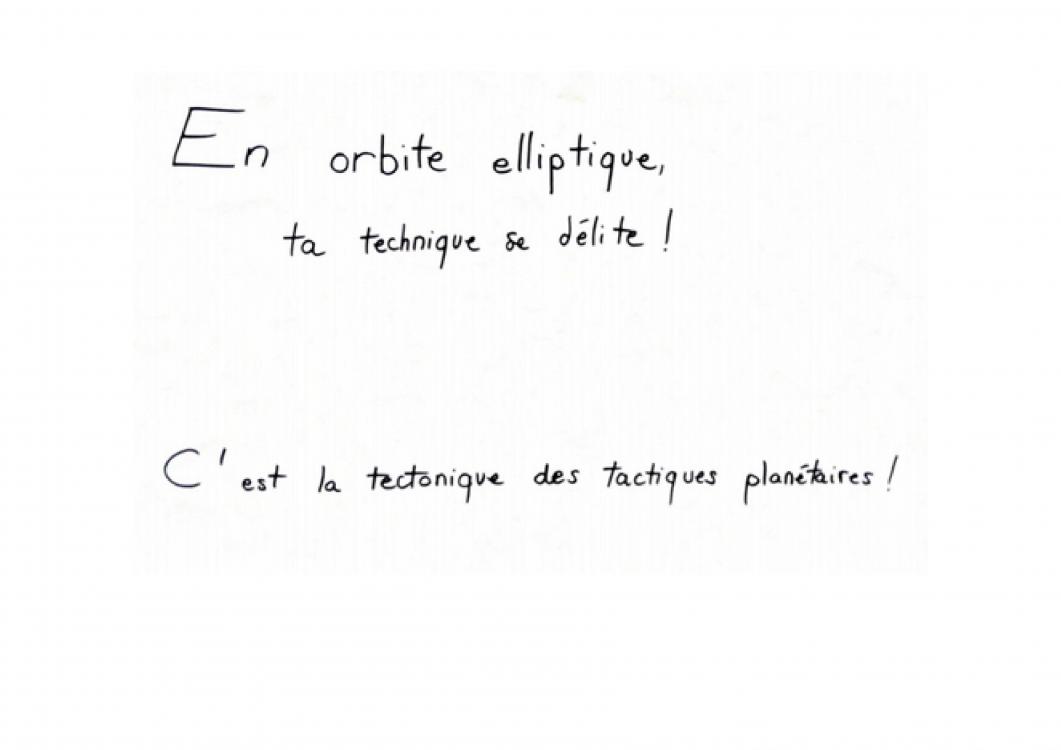 En orbite elliptique,
ta technique se délite !
C'est la tectonique des tactiques planétaires !